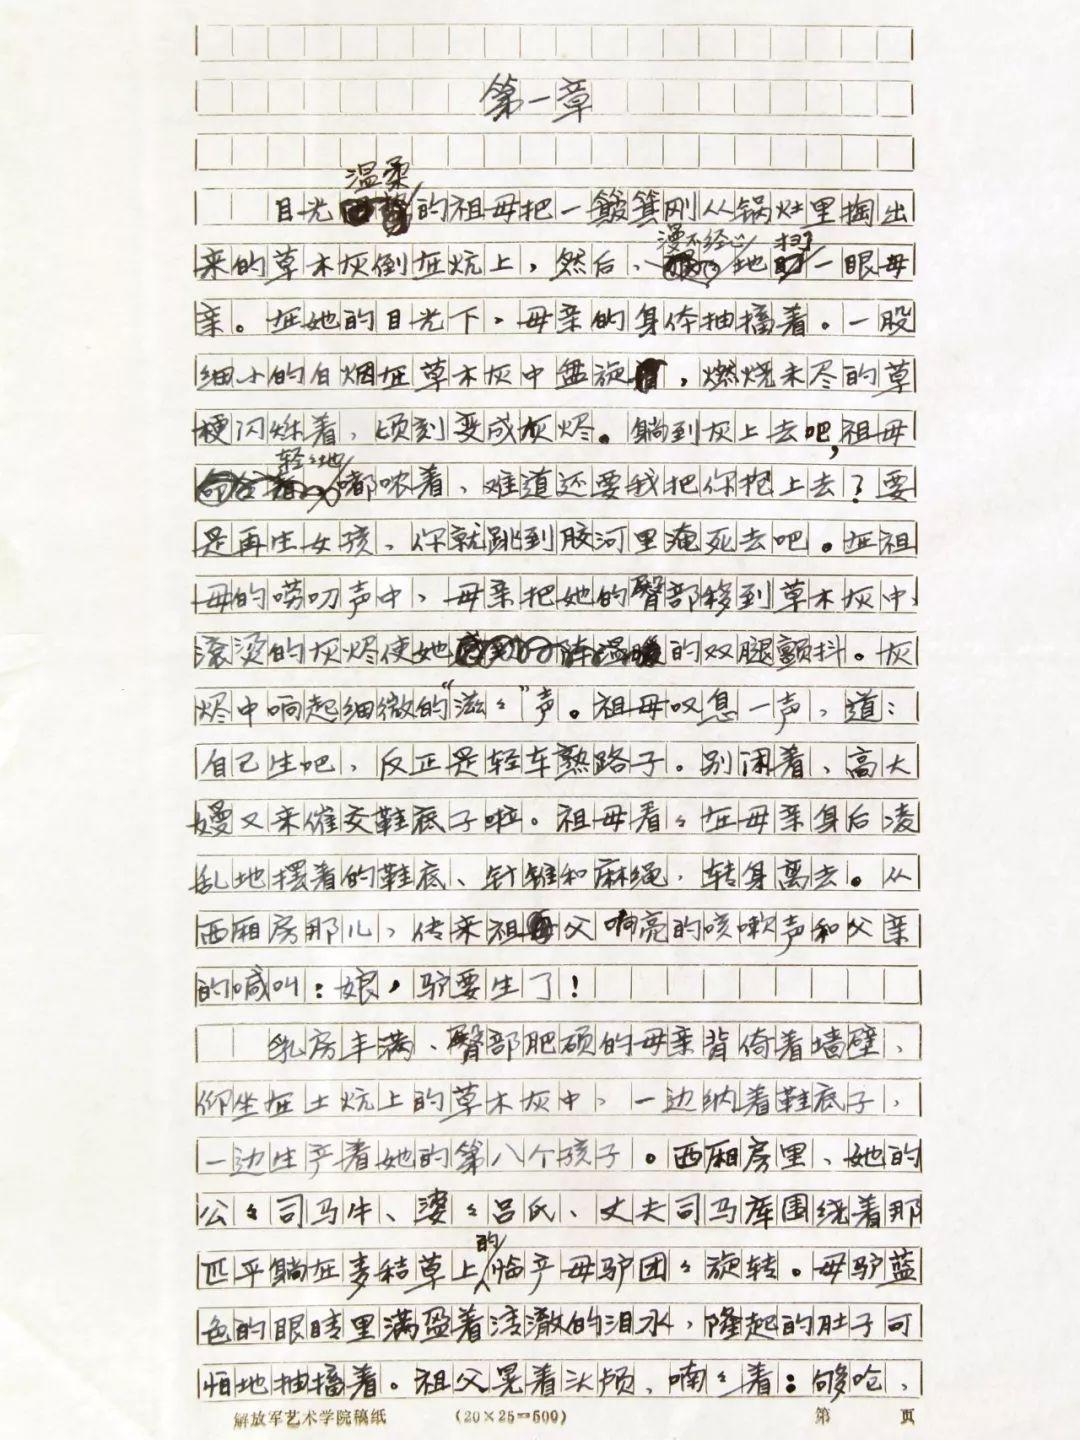 第一章
温柔
目光的祖母把一簸箕刚从锅灶里掏出
漫不经心 扫了
来的草木灰倒在炕上，然后、地一眼母
亲。在她的目光下，母亲的身体抽搐着。一股
细小的白烟在草木灰中盘旋，燃烧未尽的草
梗闪烁着，顷刻变成灰烬。躺到灰上去吧，祖母
轻々地
嘟哝着、难道还要我把你抱上去？要
是再生女孩、你就跳到胶河里淹死去吧。在祖
母的唠叨声中、母亲把她的臀部移到草木灰中，
滚烫的灰烬使她的双腿颤抖。灰
烬中响起细微的“滋々”声。祖母叹息一声、道：
自己生吧、反正是轻车熟路子。别闲着、高大
嫚又来催交鞋底子啦。祖母看々在母亲身后凌
乱地摆着的鞋底、针锥和麻绳，转身离去。从
西厢房那儿，传来祖父响亮的咳嗽声和父亲
的喊叫：娘，驴要生了！
乳房丰满、臀部肥硕的母亲背倚着墙壁、
仰坐在土炕上的草木灰中，一边纳着鞋底子，
一边生产着她的第八个孩子。西厢房里、她的
公々司马牛、婆々吕氏、丈夫司马库围绕着那
的
匹平躺在麦秸草上临产母驴团々旋转。母驴蓝
色的眼睛里满盈着洁澈的泪水，隆起的肚子可
怕地抽搐着。祖父晃着头颅、喃々着：够呛、
解放军艺术学院稿纸 (20×25=500) 第 页